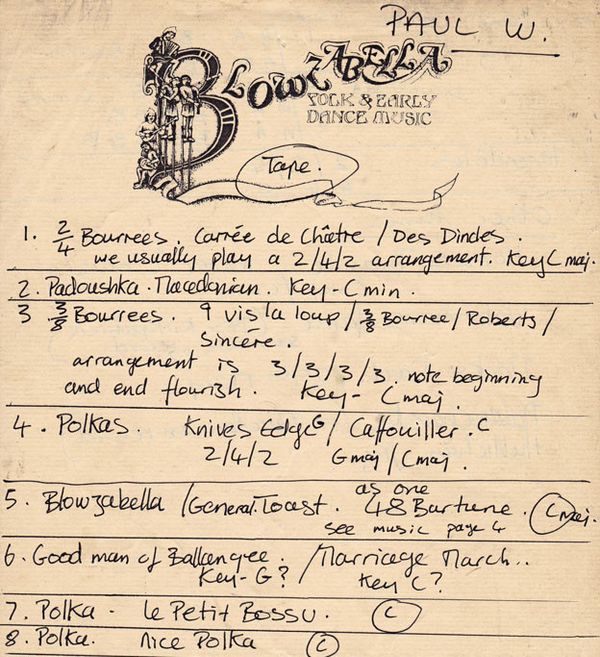 PAUL W.
BLOWZABELLA
FOLK & EARLY
DANCE MUSIC
Tape.
1. 2/4 Bourrees. Carrée de Chîetre / Des Dindes.
we usually play a 2/4/2 arrangement. Key C maj.
2. Padoushka. Macedonian. Key - C min.
3 3/8 Bourrees. 9 vis la loup / 3/8 Bourree / Roberts /
Sincére.
arrangement is 3/3/3/3. note beginning
and end flourish. Key - C maj
4. Polkas. Knives Edge G / Caffouiller. C
2/4/2 G maj / C maj.
5. Blowzabella / General Toast. as one
48 Bar tune. C maj.
see music page 4
6. Good man of Ballangee. / Marriage March..
Key - G? Key C?
7. Polka - le Petit Bossu. C
8. Polka. Nice Polka C